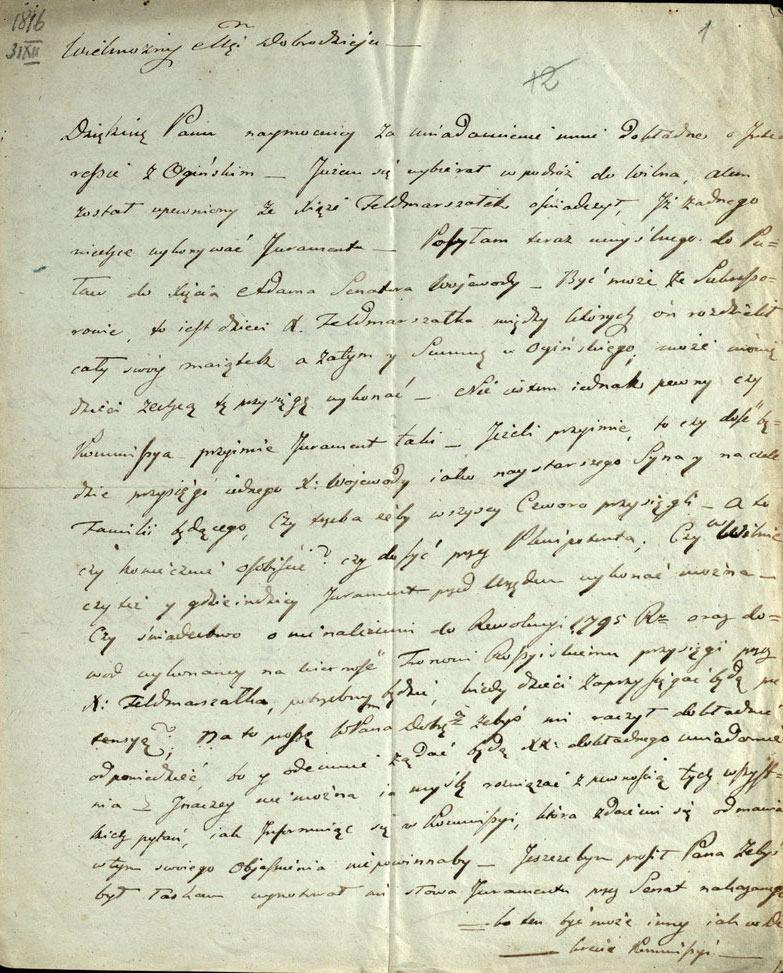 1816
31 XII
1
12
Wielmożny Mci Dobrodzieju —
Dziękuię Panu naymocniey za uwiadomienie mnie dokładne o Inte-
ressie z Ogińskim — Jużem się wybierał w podróż do Wilna, alem
został upewniony że Xiąże Feldmarszałek oświadczył, Iż żadnego
niechce wykonywać Juramentu — Posyłam teraz umyślnego do Pu=
ław do Xięcia Adama Senatora Woiewody — Być może że Sukcesso-
rowie, to iest dzieci X. Feldmarszałka między których on rozdzielił
cały swóy maiątek a zatym y Summę u Ogińskiego, może mówię
dzieci zechcą tę przysięgę wykonać — Nie iestem iednak pewny czy
Kommissya przyimie Jurament taki — Jeżeli przyimie, to czy dość bę=
dzie przysięgi iednego X: Woiewody iako naystarszego Syna y na czele
Familii będącego, Czy trzeba żeby wszyscy Czworo przysięgli — A to
czy koniecznie osobiście? czy dosyć przez Plenipotenta; Czy w Wilnie
czy też y gdzieindziey Jurament przed Urzędem wykonać można —
Czy świadectwo o nienależeniu do Rewolucyi 1795 Rz oraz do=
wod wykonaney na wierność Tronowi Rossyiskiemu przysięgi przez
X: Feldmarszałka, potrzebny będzie, kiedy dzieci zaprzysięgać będą pre
tensyą?; Na to proszę WPana Dobrza żebyś mi raczył dokładnie
odpowiedzieć, bo y odemnie żądać będą XX: dokładnego uwiadomie
nia — Inaczey nie można ia myślę rozwiązać z pewnością tych wszyst-
kich pytań, iak Informuiąc się w Kommissyi, która zdaie mi się odmawiać
w tym swoiego obiaśnienia niepowinnaby — Jeszczebym prosił Pana żebyś
był łaskaw wynotować mi słowa Juramentu przez Senat nakazanego
— bo ten być może inny iak w
— Kommissyi —